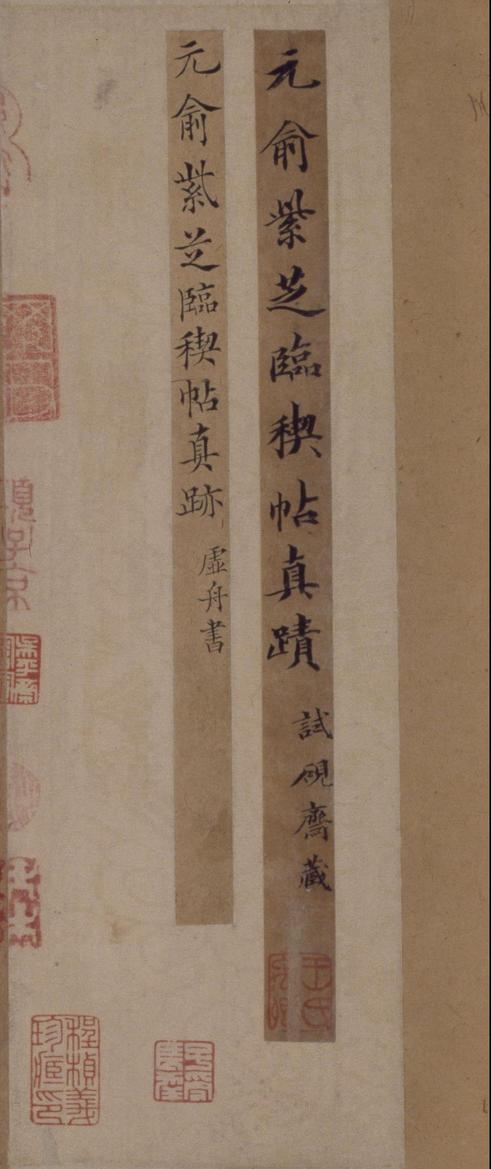 元俞紫芝臨稧帖真蹟
試硯齋藏
元俞紫芝臨稧帖真跡
虛舟書
程楨義
珍庭印